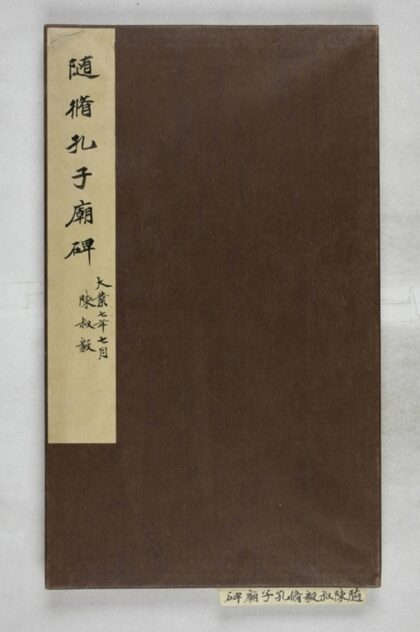 随脩孔子廟碑
大業七年七月
陳叔毅
随陳叔毅脩孔子廟碑